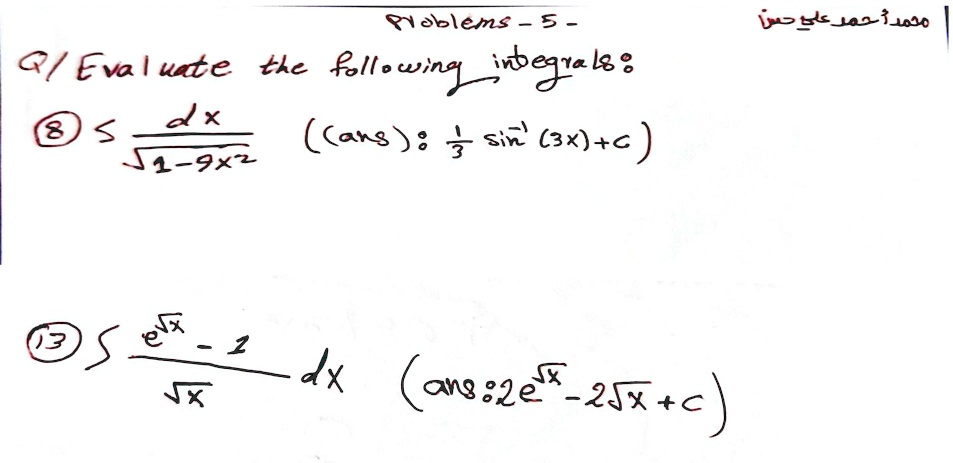 Problems - 5 -
محمد أحمد علي حسن
Q/ Evaluate the following integrals:
⑧ ∫ dx / √(1-9x²) ((ans): 1/3 sin⁻¹ (3x)+c)
⑬ ∫ (e^√x - 1) / √x dx (ans: 2e^√x - 2√x + c)